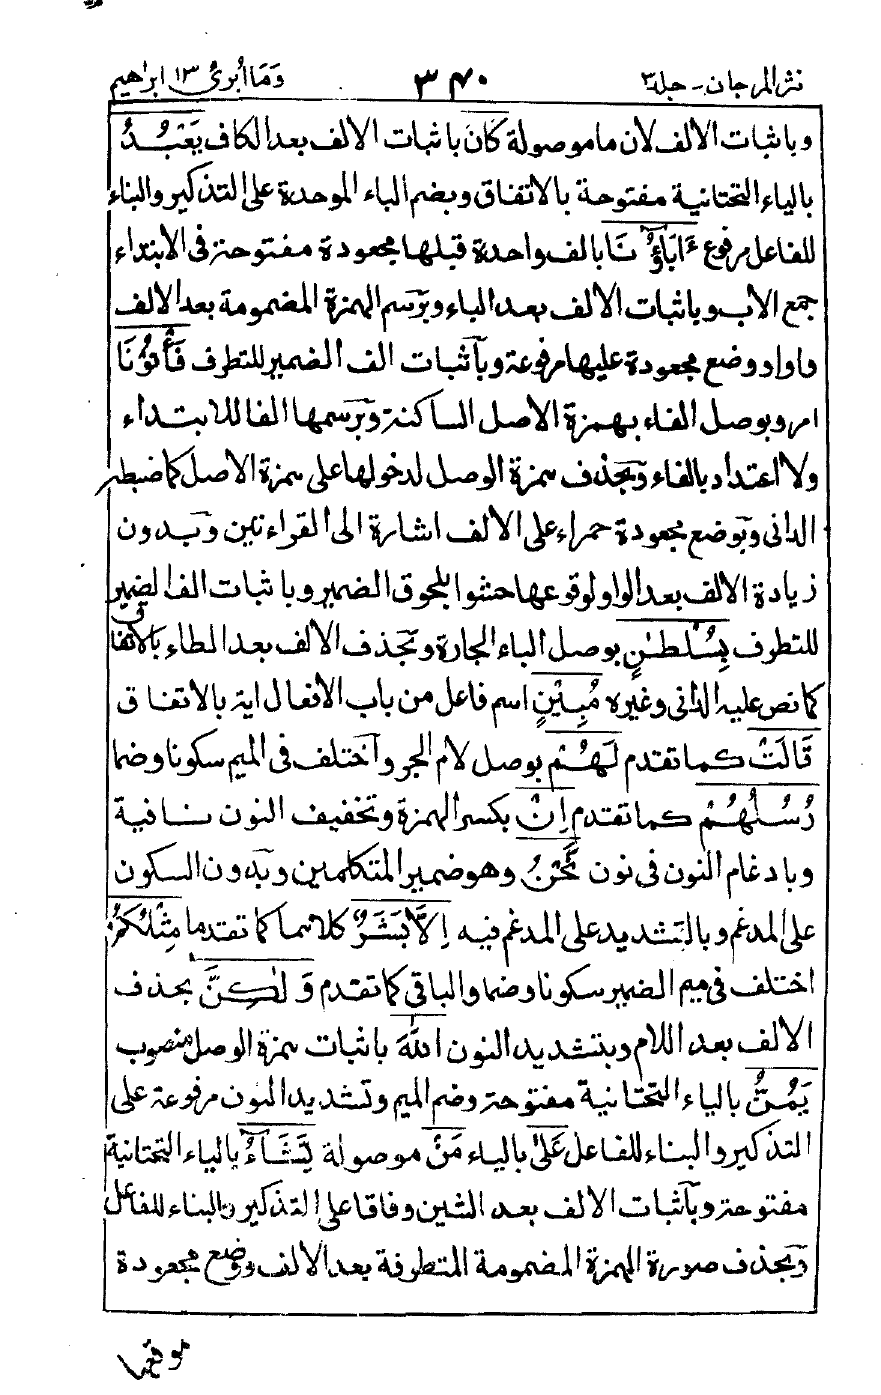 نثر المرجان - جلد ٣ ٣٤٠ وَمَا أُبَرِّئُ ١٣ ابراهيم
وباثبات الالف لان ما موصولة كَانَ باثبات الالف بعد الكاف يَعْبُدُ
بالياء التحتانية مفتوحة بالاتفاق وبضم الباء الموحدة على التذكير والبناء
للفاعل مرفوع ءَابَاؤُنَا بالف واحدة قبلها مجعودة مفتوحة فى الابتداء
جمع الأب وباثبات الالف بعد الباء وبرسم الهمزة المضمومة بعد الالف
واوا ووضع مجعودة عليها مرفوعة وبآثبات الف الضمير للتطرف فَأْتُوْنَا
امر وبوصل الفاء بهمزة الاصل الساكنة وبرسمها الفا للابتداء
ولا اعتداد بالفاء وبحذف همزة الوصل لدخولها على همزة الاصل كما ضبطه
الدانى وبوضع مجعودة حمراء على الالف اشارة الى القراءتين وبدون
زيادة الالف بعد الواو لوقوعها حشوا بلحوق الضمير وباثبات الف الضمير
للتطرف بِسُلْطٰنٍ بوصل الباء الجارة وبحذف الالف بعد الطاء بالاتفاق
كما نص عليه الدانى وغيره مُبِيْنٍ اسم فاعل من باب الافعال اية بالاتفاق
قَالَتْ كما تقدم لَهُمْ بوصل لام الجر وآختلف فى الميم سكونا وضما
رُسُلُهُمْ كما تقدم اِنْ بكسر الهمزة وتخفيف النون نافية
وبادغام النون فى نون نَّحْنُ وهو ضمير المتكلمين وبدون السكون
على المدغم وبالتشديد على المدغم فيه اِلَّا بَشَرٌ كلاهما كما تقدما مِثْلُكُمْ
اختلف فى ميم الضمير سكونا وضما والباقى كما تقدم وَلٰكِنَّ بحذف
الالف بعد اللام وبتشديد النون اللّٰهَ باثبات همزة الوصل منصوب
يَمُنُّ بالياء التحتانية مفتوحة وضم الميم وتشديد النون مرفوعة على
التذكير والبناء للفاعل عَلٰى بالياء مَنْ موصولة يَّشَآءُ بالياء التحتانية
مفتوحة وبآثبات الالف بعد الشين وفاقا على التذكير والبناء للفاعل
وبحذف صورة الهمزة المضمومة المتطرفة بعد الالف ووضع مجعودة
موقعها